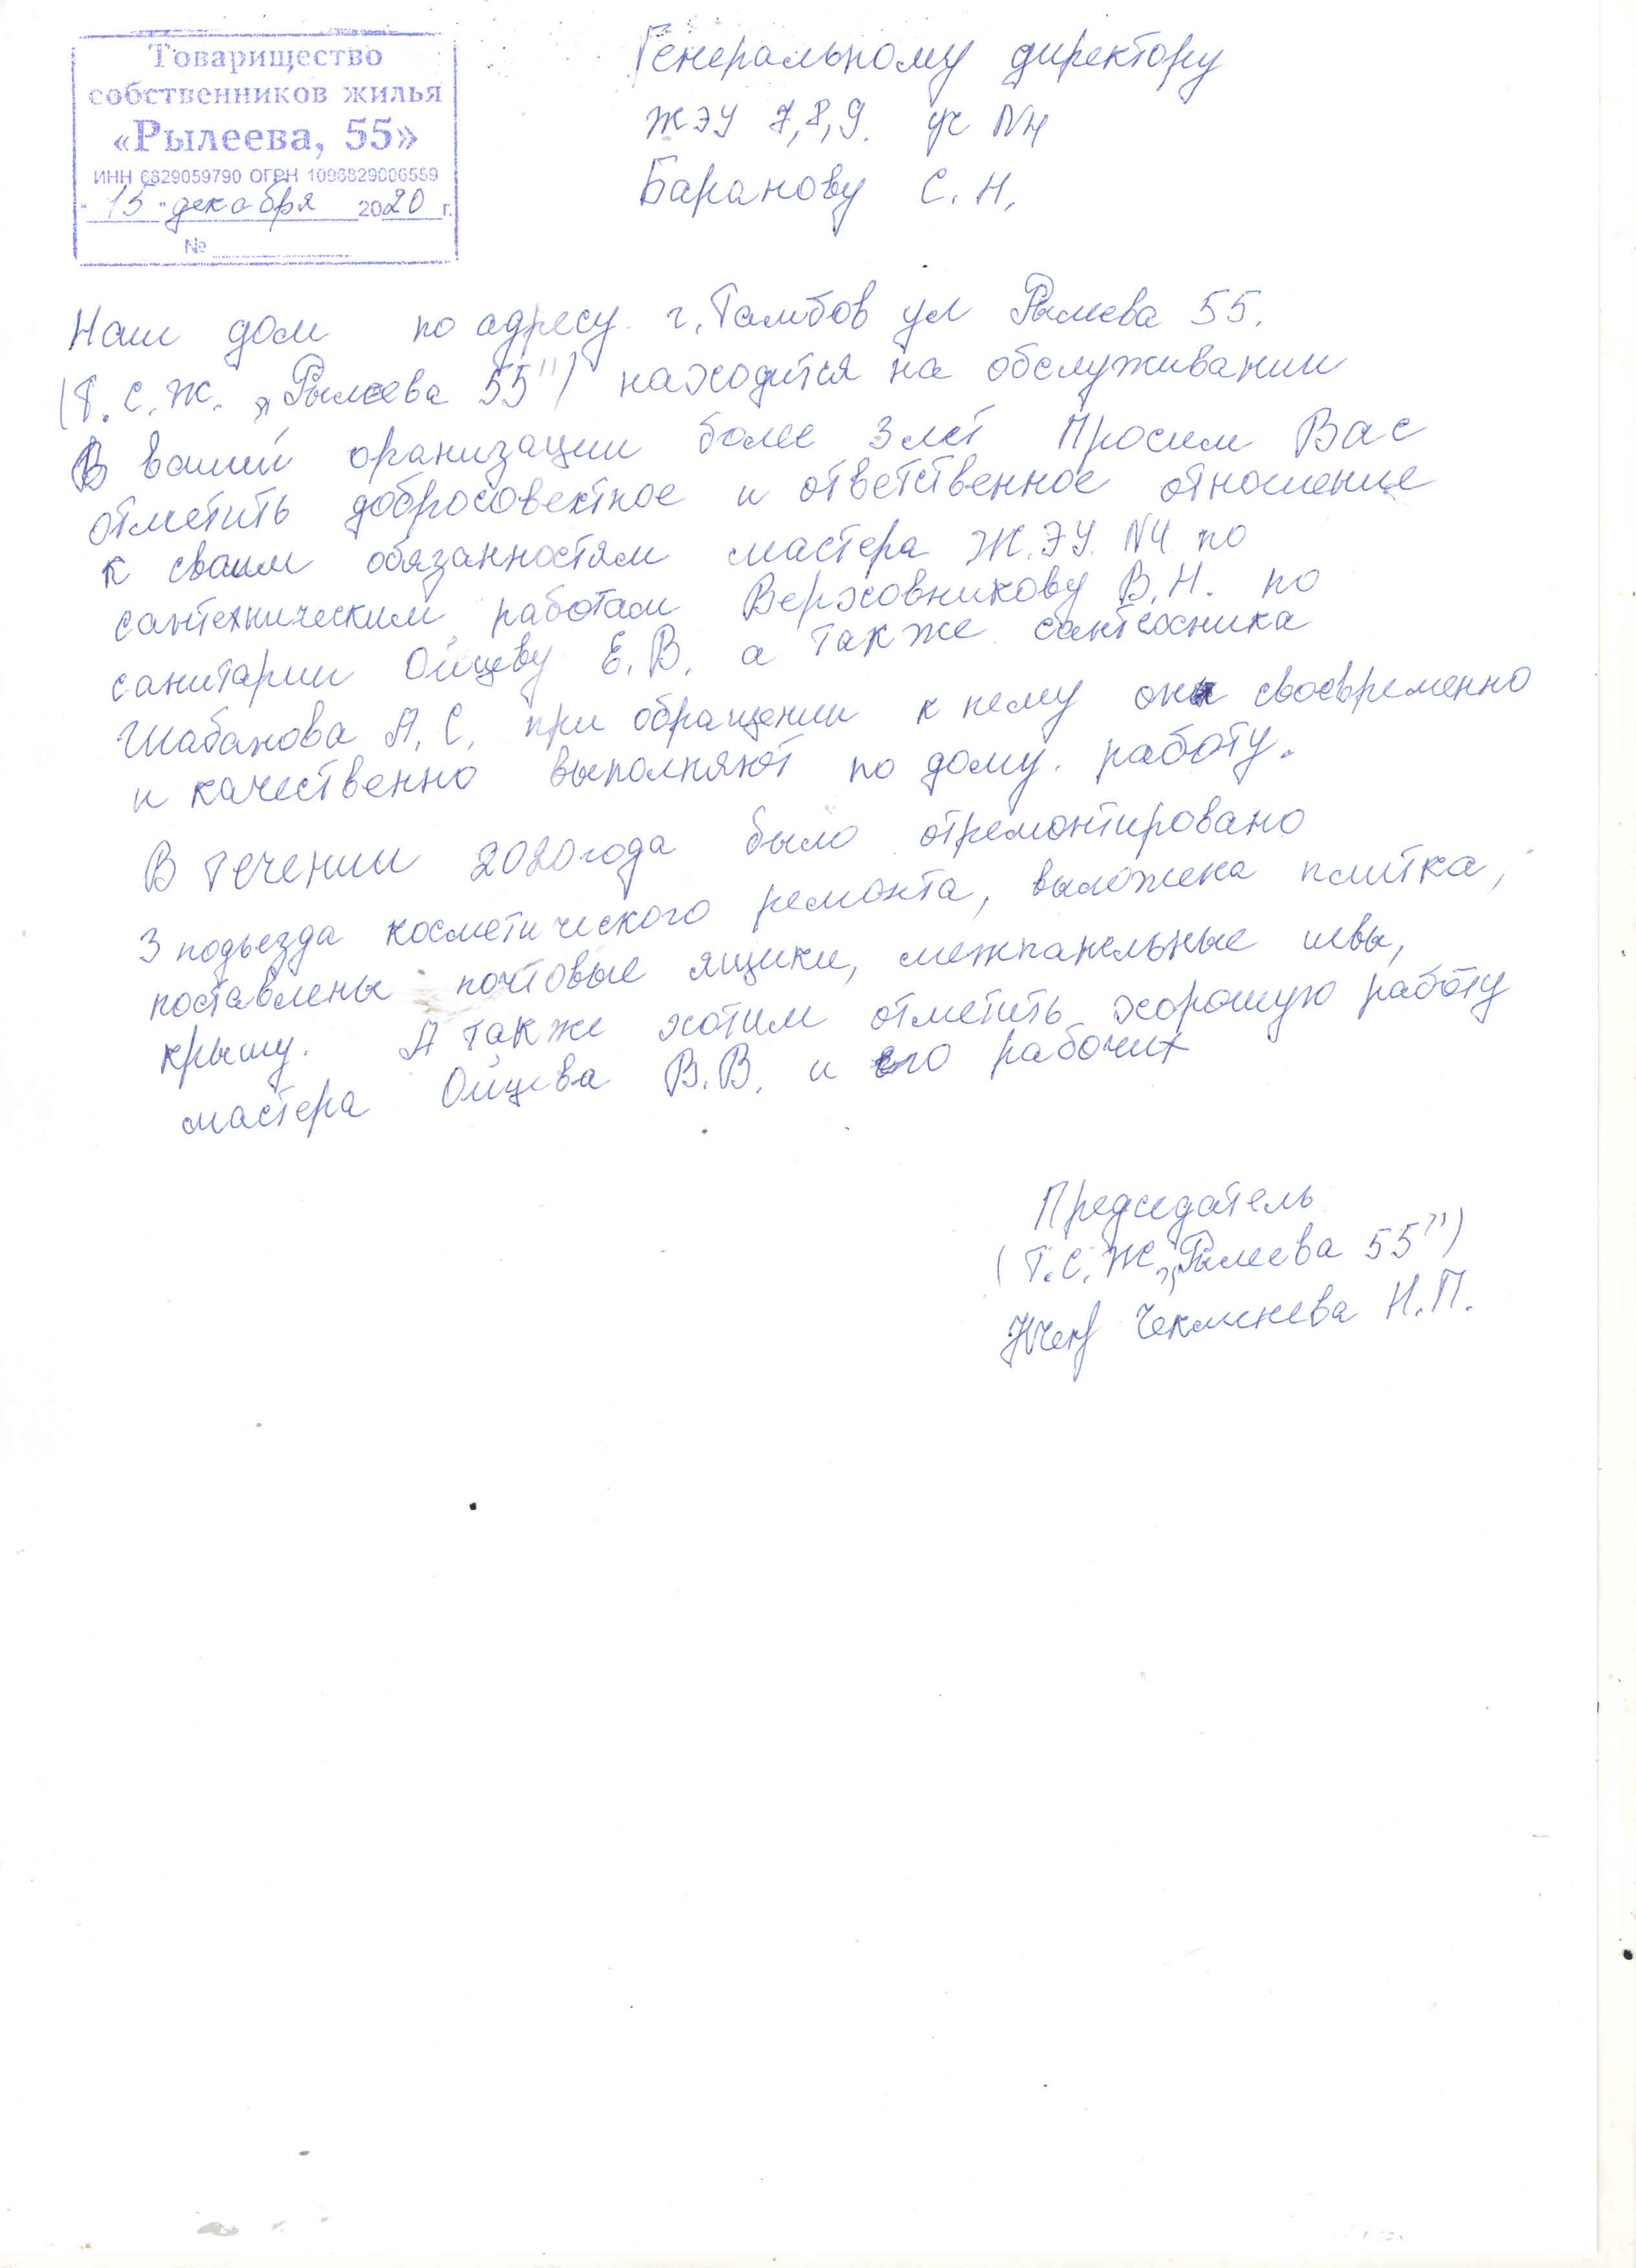 Товарищество
собственников жилья
«Рылеева, 55»
ИНН 6829059790 ОГРН 1096829006559
"15" декабря 2020 г.
№
Генеральному директору
ЖЭУ 7,8,9. уч N4
Баранову С.Н.
Наш дом по адресу г. Тамбов ул Рылеева 55.
(Т.С.Ж. „Рылеева 55") находится на обслуживании
В вашей оранизации более 3 лет Просим Вас
отметить добросовектное и ответственное отношение
к своим обязанностям мастера Ж.ЭУ. N4 по
сантехническим работам Верховникову В.Н. по
санитарии Ойцеву Е.В. а также сантехника
Шабанова А.С. при обращении к нему они своевременно
и качественно выполняют по дому. работу.
В течении 2020 года было отремонтировано
3 подьезда косметического ремонта, выложена плитка,
поставлены почтовые ящики, межпанельные швы,
крышу. А также хотим отметить хорошую работу
мастера Ойцева В.В. и его рабочих
Председатель
(Т.С.Ж „Рылеева 55")
Чекменева Н.П.